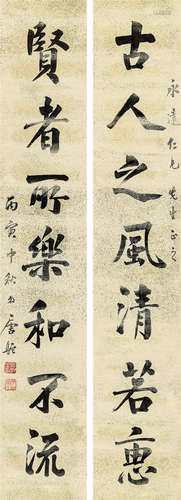 古人之風清若惠
永遠仁兄先生正之
賢者所樂和不流
丙寅中秋
唐駝